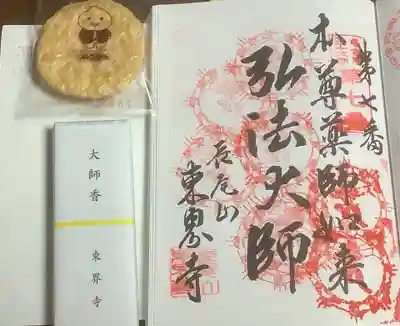 第七番
本尊薬師如来
弘法大師
長尾山
東界寺
大師香
東界寺